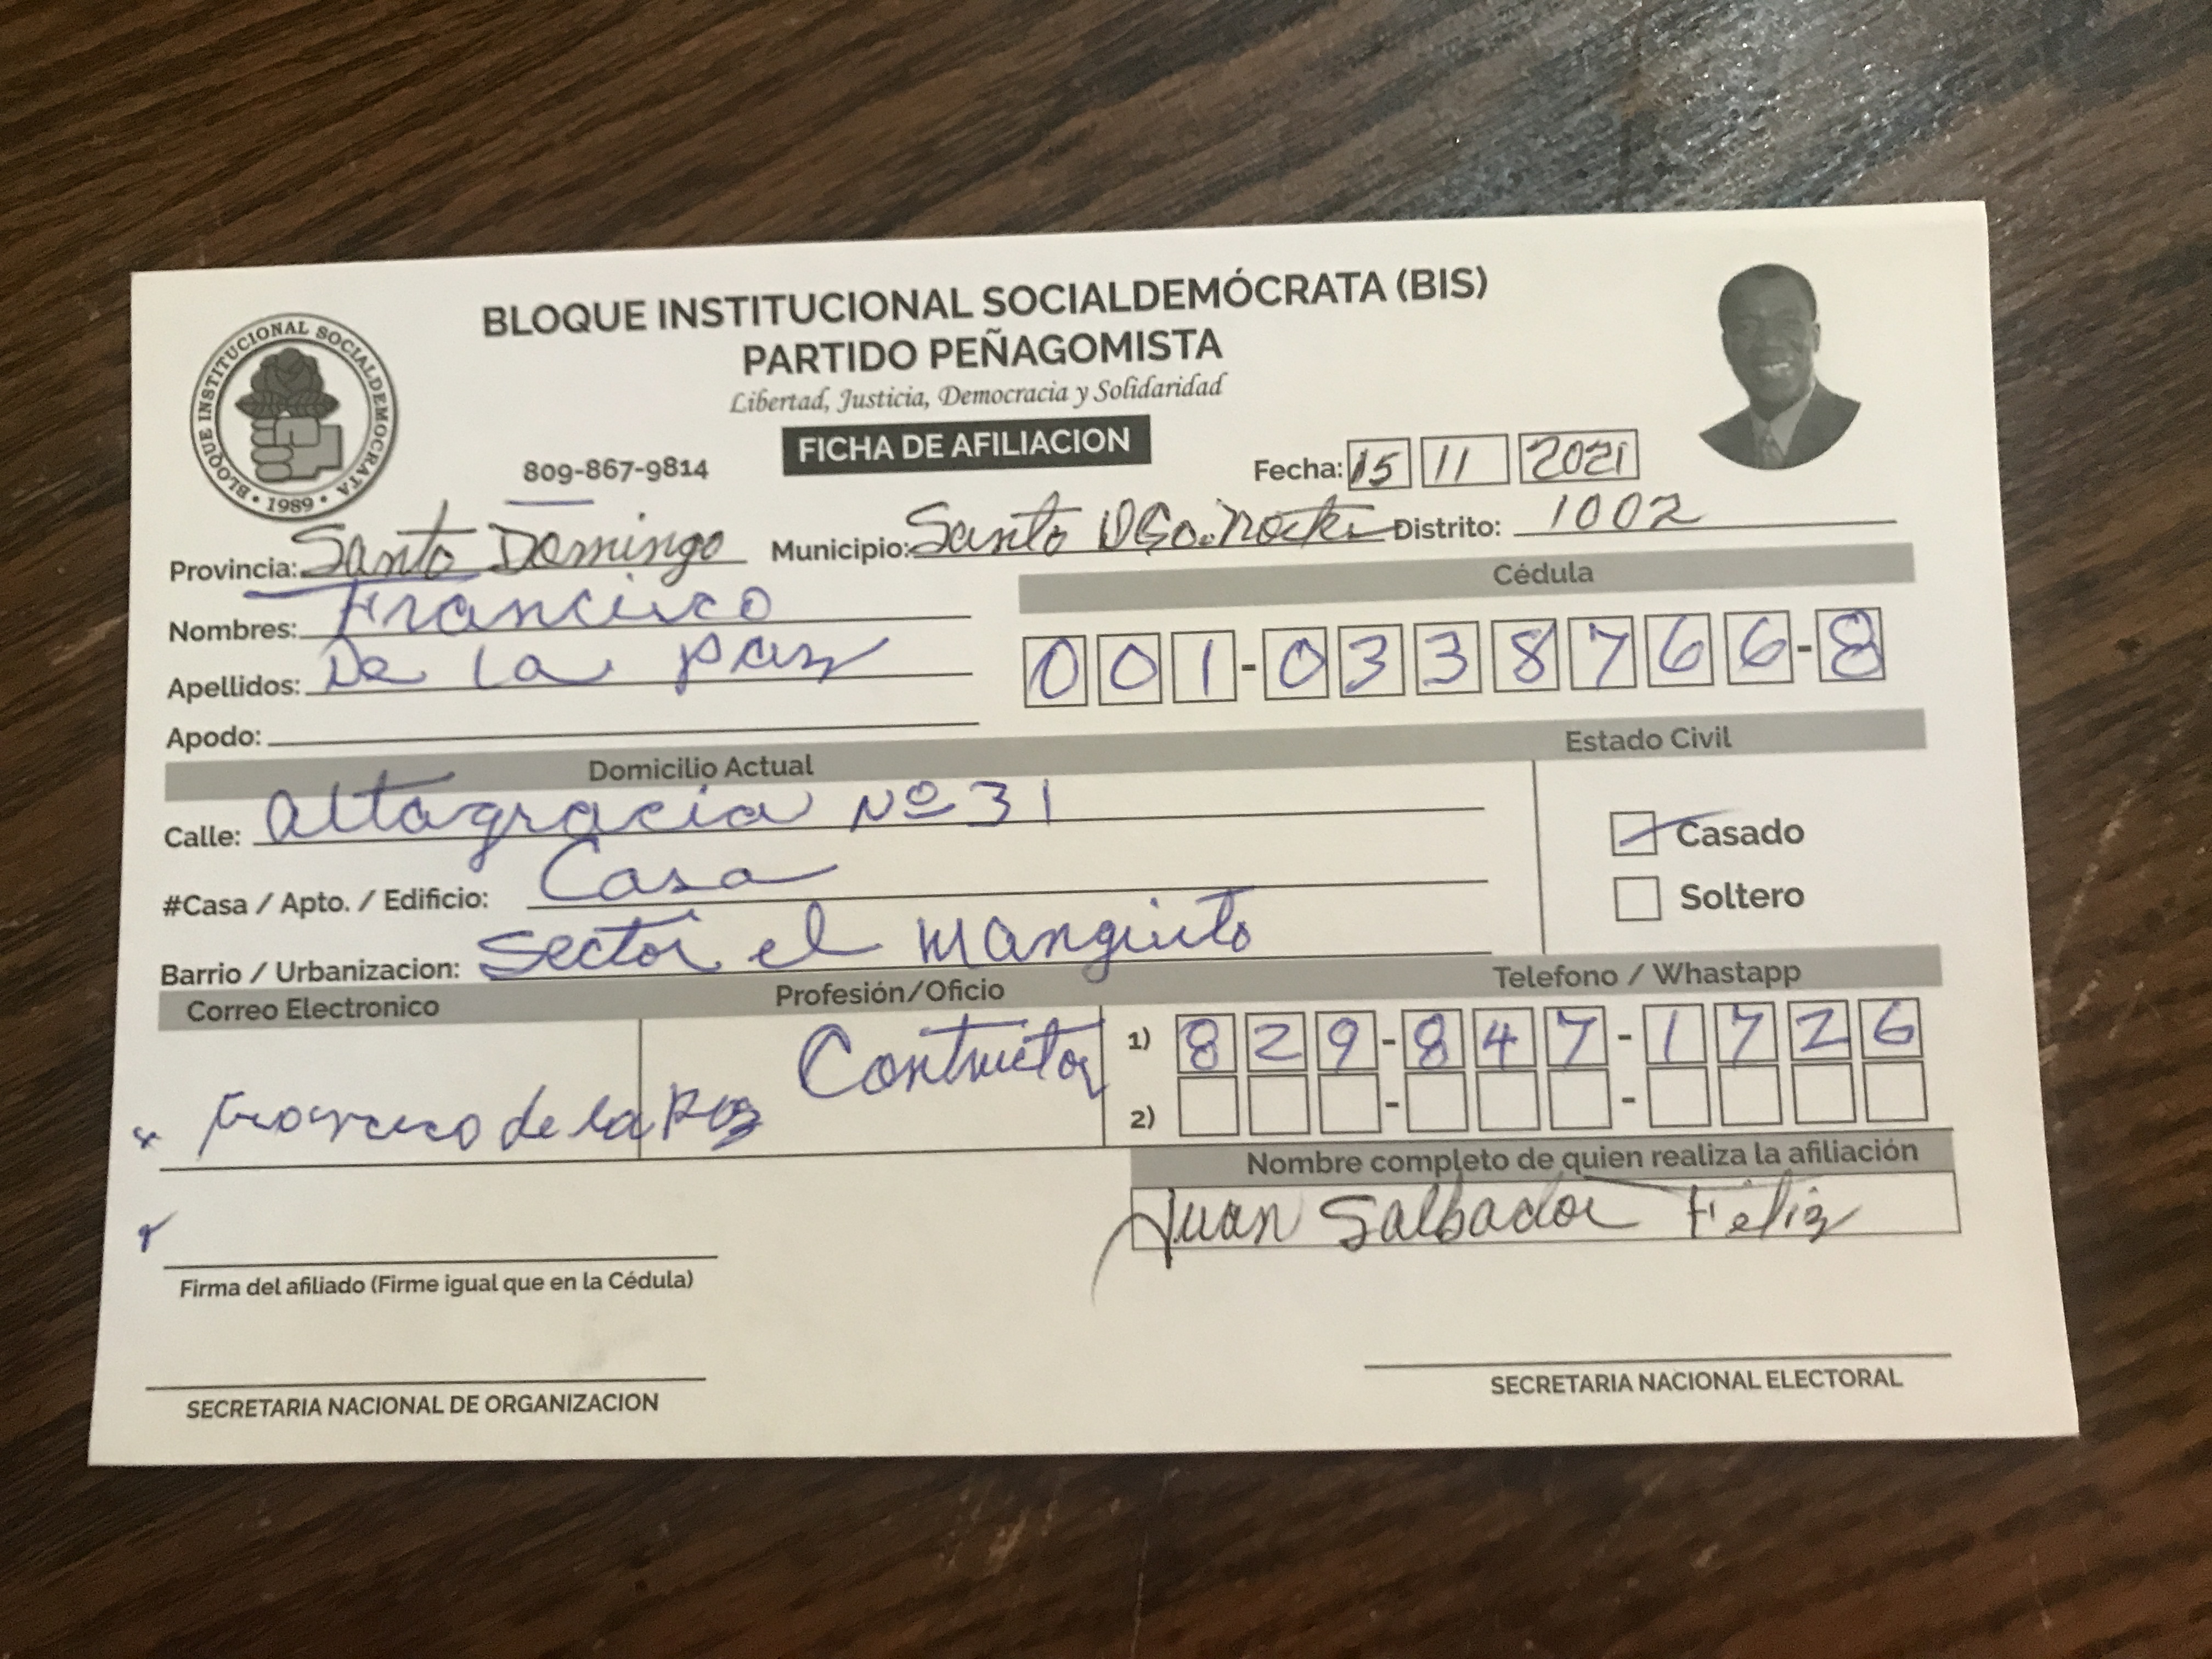 BLOQUE INSTITUCIONAL SOCIALDEMÓCRATA (BIS)
PARTIDO PEÑAGOMISTA
Libertad, Justicia, Democracia y Solidaridad
BLOQUE INSTITUCIONAL SOCIALDEMOCRATA • 1989 •
FICHA DE AFILIACION
809-867-9814
Fecha: 15 11 2021
Provincia: Santo Domingo Municipio: Santo DGo. Norte Distrito: 1002
Nombres: Francisco
Apellidos: De la paz
Apodo:
Cédula
001-0338766-8
Domicilio Actual
Estado Civil
Calle: altagracia Nº 31
Casado
#Casa / Apto. / Edificio: Casa
Soltero
Barrio / Urbanizacion: Sector el Manguito
Correo Electronico Profesión/Oficio Telefono / Whastapp
Contructor
1) 829-847-1726
2) - -
Francisco de la Paz
Nombre completo de quien realiza la afiliación
Juan Salbador Féliz
Firma del afiliado (Firme igual que en la Cédula)
SECRETARIA NACIONAL DE ORGANIZACION
SECRETARIA NACIONAL ELECTORAL